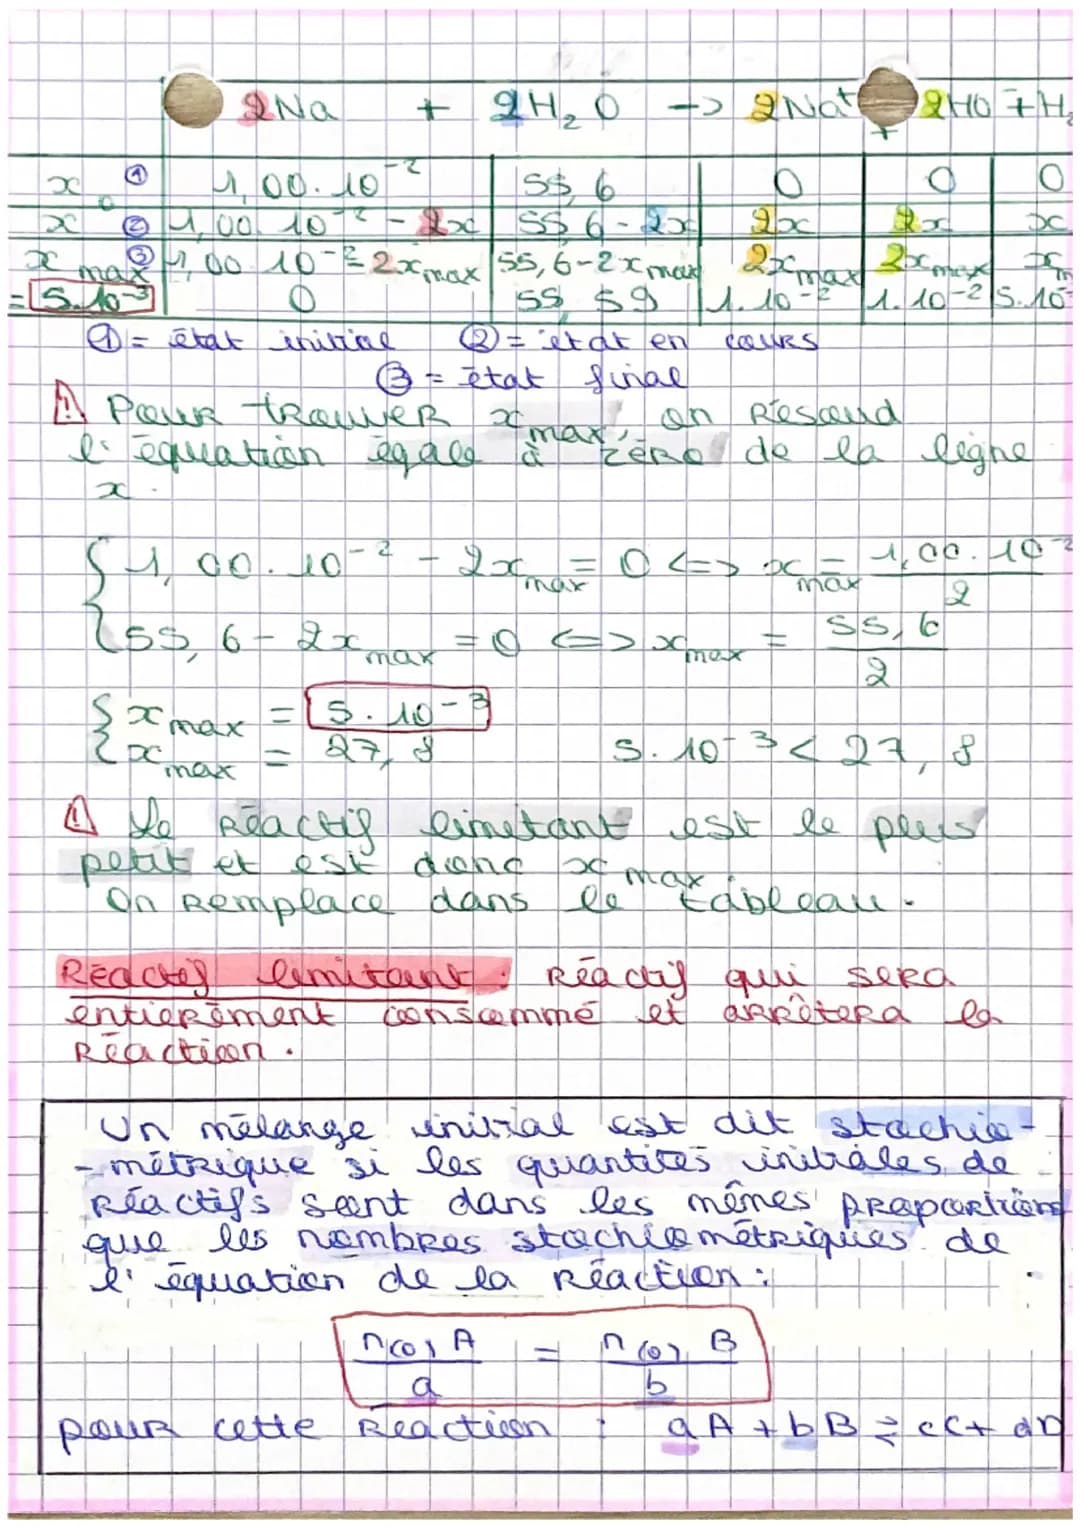 2Na + 2H₂O -> 2Na⁺ + 2HO⁻ + H₂
x₀ ① 1,00.10⁻² 55,6 0 0 0
x ② 1,00.10⁻² - 2x 55,6 - 2x 2x 2x x
x max ③ 1,00.10⁻² - 2x max 55,6 - 2x max 2x max 2x max x m
= 5.10⁻³ 0 55,59 1.10⁻² 1.10⁻² 5.10⁻
① = état initial ② = état en cours
③ = état final
⚠ Pour trouver x max, on résoud
l'équation égale à zéro de la ligne
x.
{ 1,00.10⁻² - 2x max = 0 <=> x max = 1,00.10⁻² / 2
{ 55,6 - 2x max = 0 <=> x max = 55,6 / 2
{ x max = 5.10⁻³
{ x max = 27,8 5.10⁻³ < 27,8
⚠ Le réactif limitant est le plus
petit et est donc x max.
On remplace dans le tableau.
Réactif limitant : Réactif qui sera
entièrement consommé et arrêtera la
réaction.
Un mélange initial est dit stochio-
-métrique si les quantités initiales de
réactifs sont dans les mêmes proportions
que les nombres stochiométriques de
l'équation de la réaction :
n(0) A / a = n(0) B / b
pour cette réaction : aA + bB ⇌ cC + dD